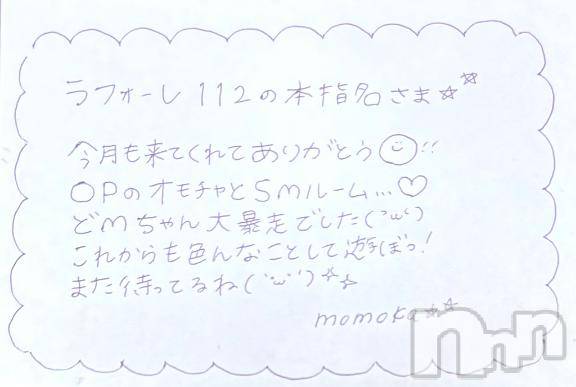 ラフォーレ112の本指名さま☆☆
今月も来てくれてありがとう☺!!
OPのオモチャとSMルーム…♡
どMちゃん大暴走でした('ω')
これからも色んなことして遊ぼっ!
また待ってるね('ω')☆☆
momoka☆☆
nnn